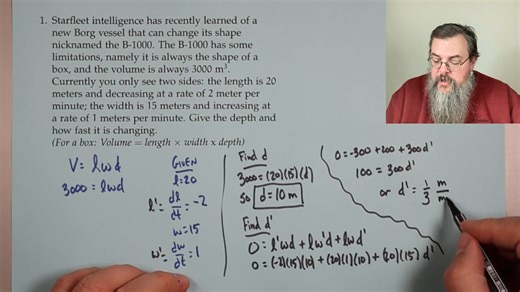 1. Starfleet intelligence has recently learned of a
new Borg vessel that can change its shape
nicknamed the B-1000. The B-1000 has some
limitations, namely it is always the shape of a
box, and the volume is always 3000 m³.
Currently you only see two sides: the length is 20
meters and decreasing at a rate of 2 meter per
minute; the width is 15 meters and increasing at
a rate of 1 meters per minute. Give the depth and
how fast it is changing.
(For a box: Volume = length × width x depth)
V = lwd
3000 = lwd
GIVEN
l = 20
l' = dl/dt = -2
w = 15
w' = dw/dt = 1
Find d
3000 = (20)(15)(d)
So d = 10 m
Find d'
0 = l'wd + lw'd + lwd'
0 = (-2)(15)(10) + (20)(1)(10) + (20)(15) d'
0 = -300 + 200 + 300d'
100 = 300d'
or d' = 1/3 m/m